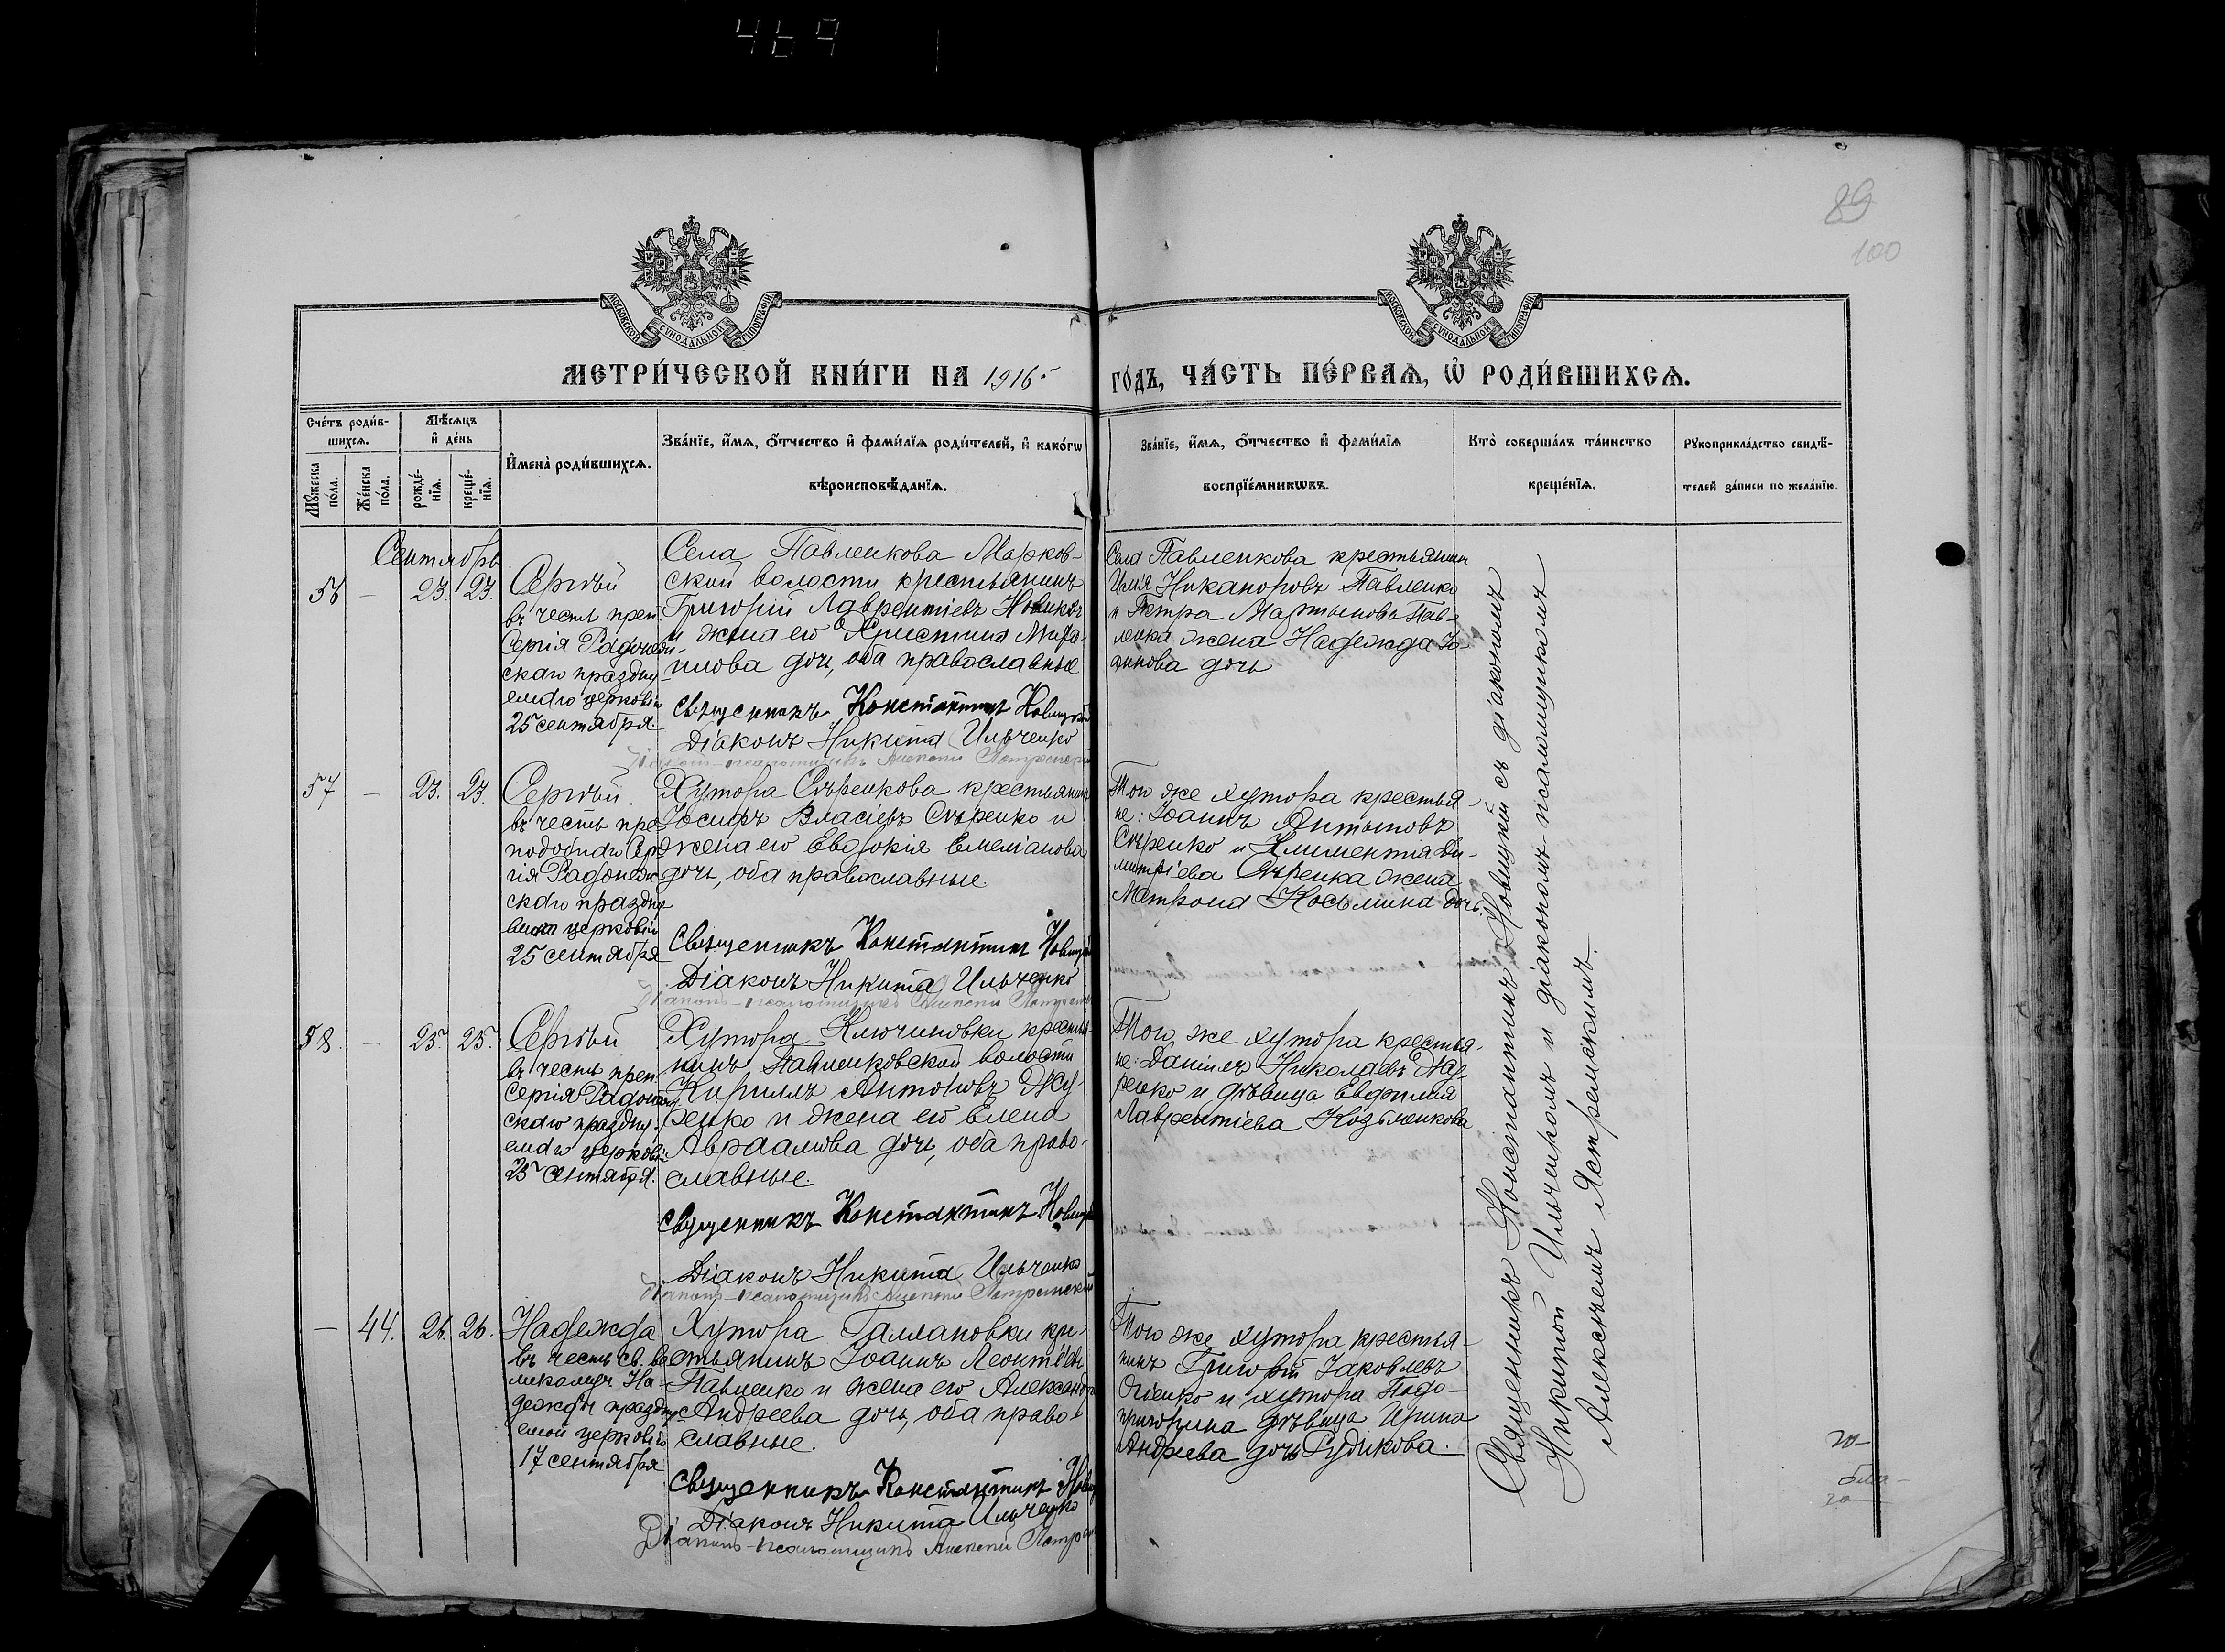 469
89
100
МОСКОВСКОЙ СУНОДАЛЬНОЙ ТИПОГРАФІИ
МОСКОВСКОЙ СУНОДАЛЬНОЙ ТИПОГРАФІИ
МЕТРИ́ЧЕСКОЙ КНИ́ГИ НА 1916 ГО́ДЪ, ЧА́СТЬ ПЕ́РВАЯ, Ѡ РОДИ́ВШИХСЯ.
Сче́тъ роди́в-
шихся.
Мꙋ́жеска по́ла.
Же́нска по́ла.
Мѣ́сяцъ
и де́нь
рожде́-
нїя.
креще́-
нїя.
Имена̀ роди́вшихся.
Зва́нїе, и́мя, о́тчество и фами́лїя роди́телей, и како́гѡ
вѣроисповѣ́данїя.
Зва́нїе, и́мя, о́тчество и фами́лїя
воспрїе́мникѡвъ.
Кто̀ соверша́лъ та́инство
креще́нїя.
Рꙋкоприкла́дство свидѣ́-
телей за́писи по жела́нїю.
Сентябрь
56 — 23. 23.
Сергѣй
въ честь преп
Сергія Радонеж-
скаго праздну
емаго церковію
25 сентября.
Села Павленкова Марков-
ской волости крестьянинъ
Григорій Лаврентіевъ Новиковъ
и жена его Христина Миха-
илова дочь, оба православные
Священникъ Константинъ Новицкій
Діаконъ Никита Ильченко
Діаконъ-псаломщикъ Алексѣй Ястремскій
Села Павленкова крестьянин
Илія Никаноровъ Павленко
и Петра Мартынова Пав-
ленка жена Надежда Іо-
аннова дочь
57 — 23. 23.
Сергѣй.
въ честь пре
подобнаго Сер
гія Радонеж
скаго праздну
емаго церковію
25 сентября
Хутора Сѣренкова крестьянинъ
Іосифъ Власіевъ Сѣренко и
жена его Евдокія Емеліанова
дочь, оба православные.
Священникъ Константинъ Новицкій
Діаконъ Никита Ильченко
Діаконъ-псаломщикъ Алексѣй Ястремскій
Того же хутора крестья-
не: Іоаннъ
Сѣренко и Климента Ди-
митріева Сѣренка жена
Матрона Косьмина дочь.
58. — 25. 25.
Сергѣй
въ честь преп.
Сергія Радонеж
скаго праздну-
емаго церковію
25 сентября.
Хутора Ключиновки крестья-
нинъ Павленковской волости
Кириллъ Антоновъ
и жена его Елена
Авраамова дочь, оба право-
славные.
Священникъ Константинъ Новицкій
Діаконъ Никита Ильченко
Діаконъ-псаломщикъ Алексѣй Ястремскій
Того же хутора крестья-
не: Даніилъ Николаевъ
и дѣвица
Лаврентіева Козьменкова
— 44. 26. 26.
Надежда
въ честь св. ве
ликомуч. На-
дежды праздну
емой церковію
17 сентября
Хутора Галлановки кре-
стьянинъ Іоаннъ Леонтіевъ
Павленко и жена его Александра
Андреева дочь, оба право-
славные.
Священникъ Константинъ Новицкій
Діаконъ Никита Ильченко
Діаконъ-псаломщикъ Алексѣй Ястремскій
Того же хутора крестья-
нинъ Григорій Іаковлевъ
Огіенко и хутора
дѣвица Ирина
Андреева дочь Рудикова.
Священникъ Константинъ Новицкій съ діакономъ
Никитой Ильченкомъ и діакономъ-псаломщикомъ
Алексѣемъ Ястремскимъ.